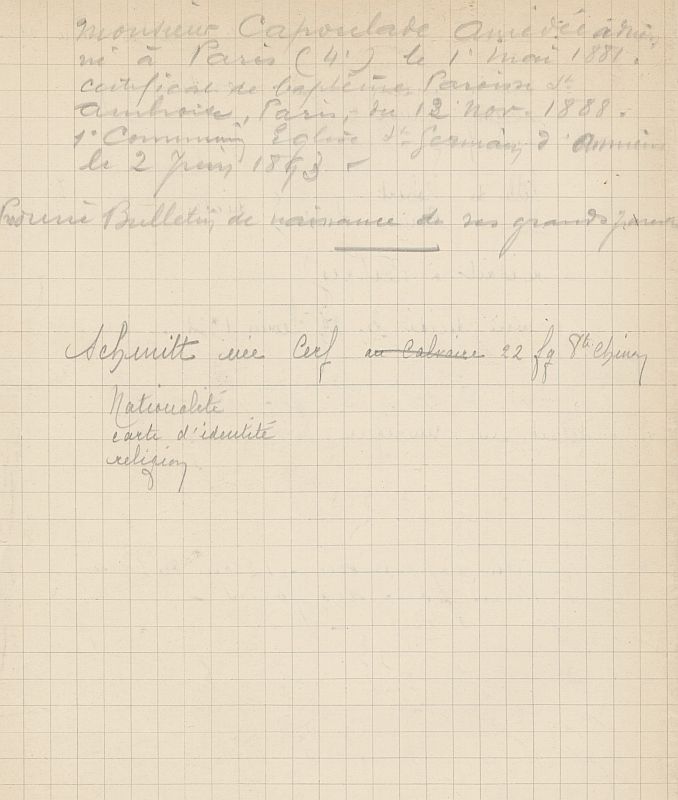 Monsieur Capoulade Amédée Adrien
né à Paris (4e) le 1er Mai 1881.
certificat de baptême, Paroisse St
Ambroise, Paris, du 12 Nov. 1888.
1e Communion Eglise St Germain d'Amiens
le 2 Juin 1893 -
Produire Bulletin de naissance de ses grands parents
Schmitt née Cerf au Calvaire 22 fg Ste
Nationalité
carte d'identité
religion